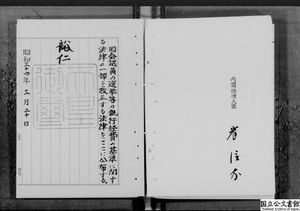 国会議員の選挙等の執行経費の基準に関す
る法律の一部を改正する法律をここに公布する。
裕仁
昭和三十四年三月三十日
内閣総理大臣
岸信介
国立公文書館
National Archives of Japan